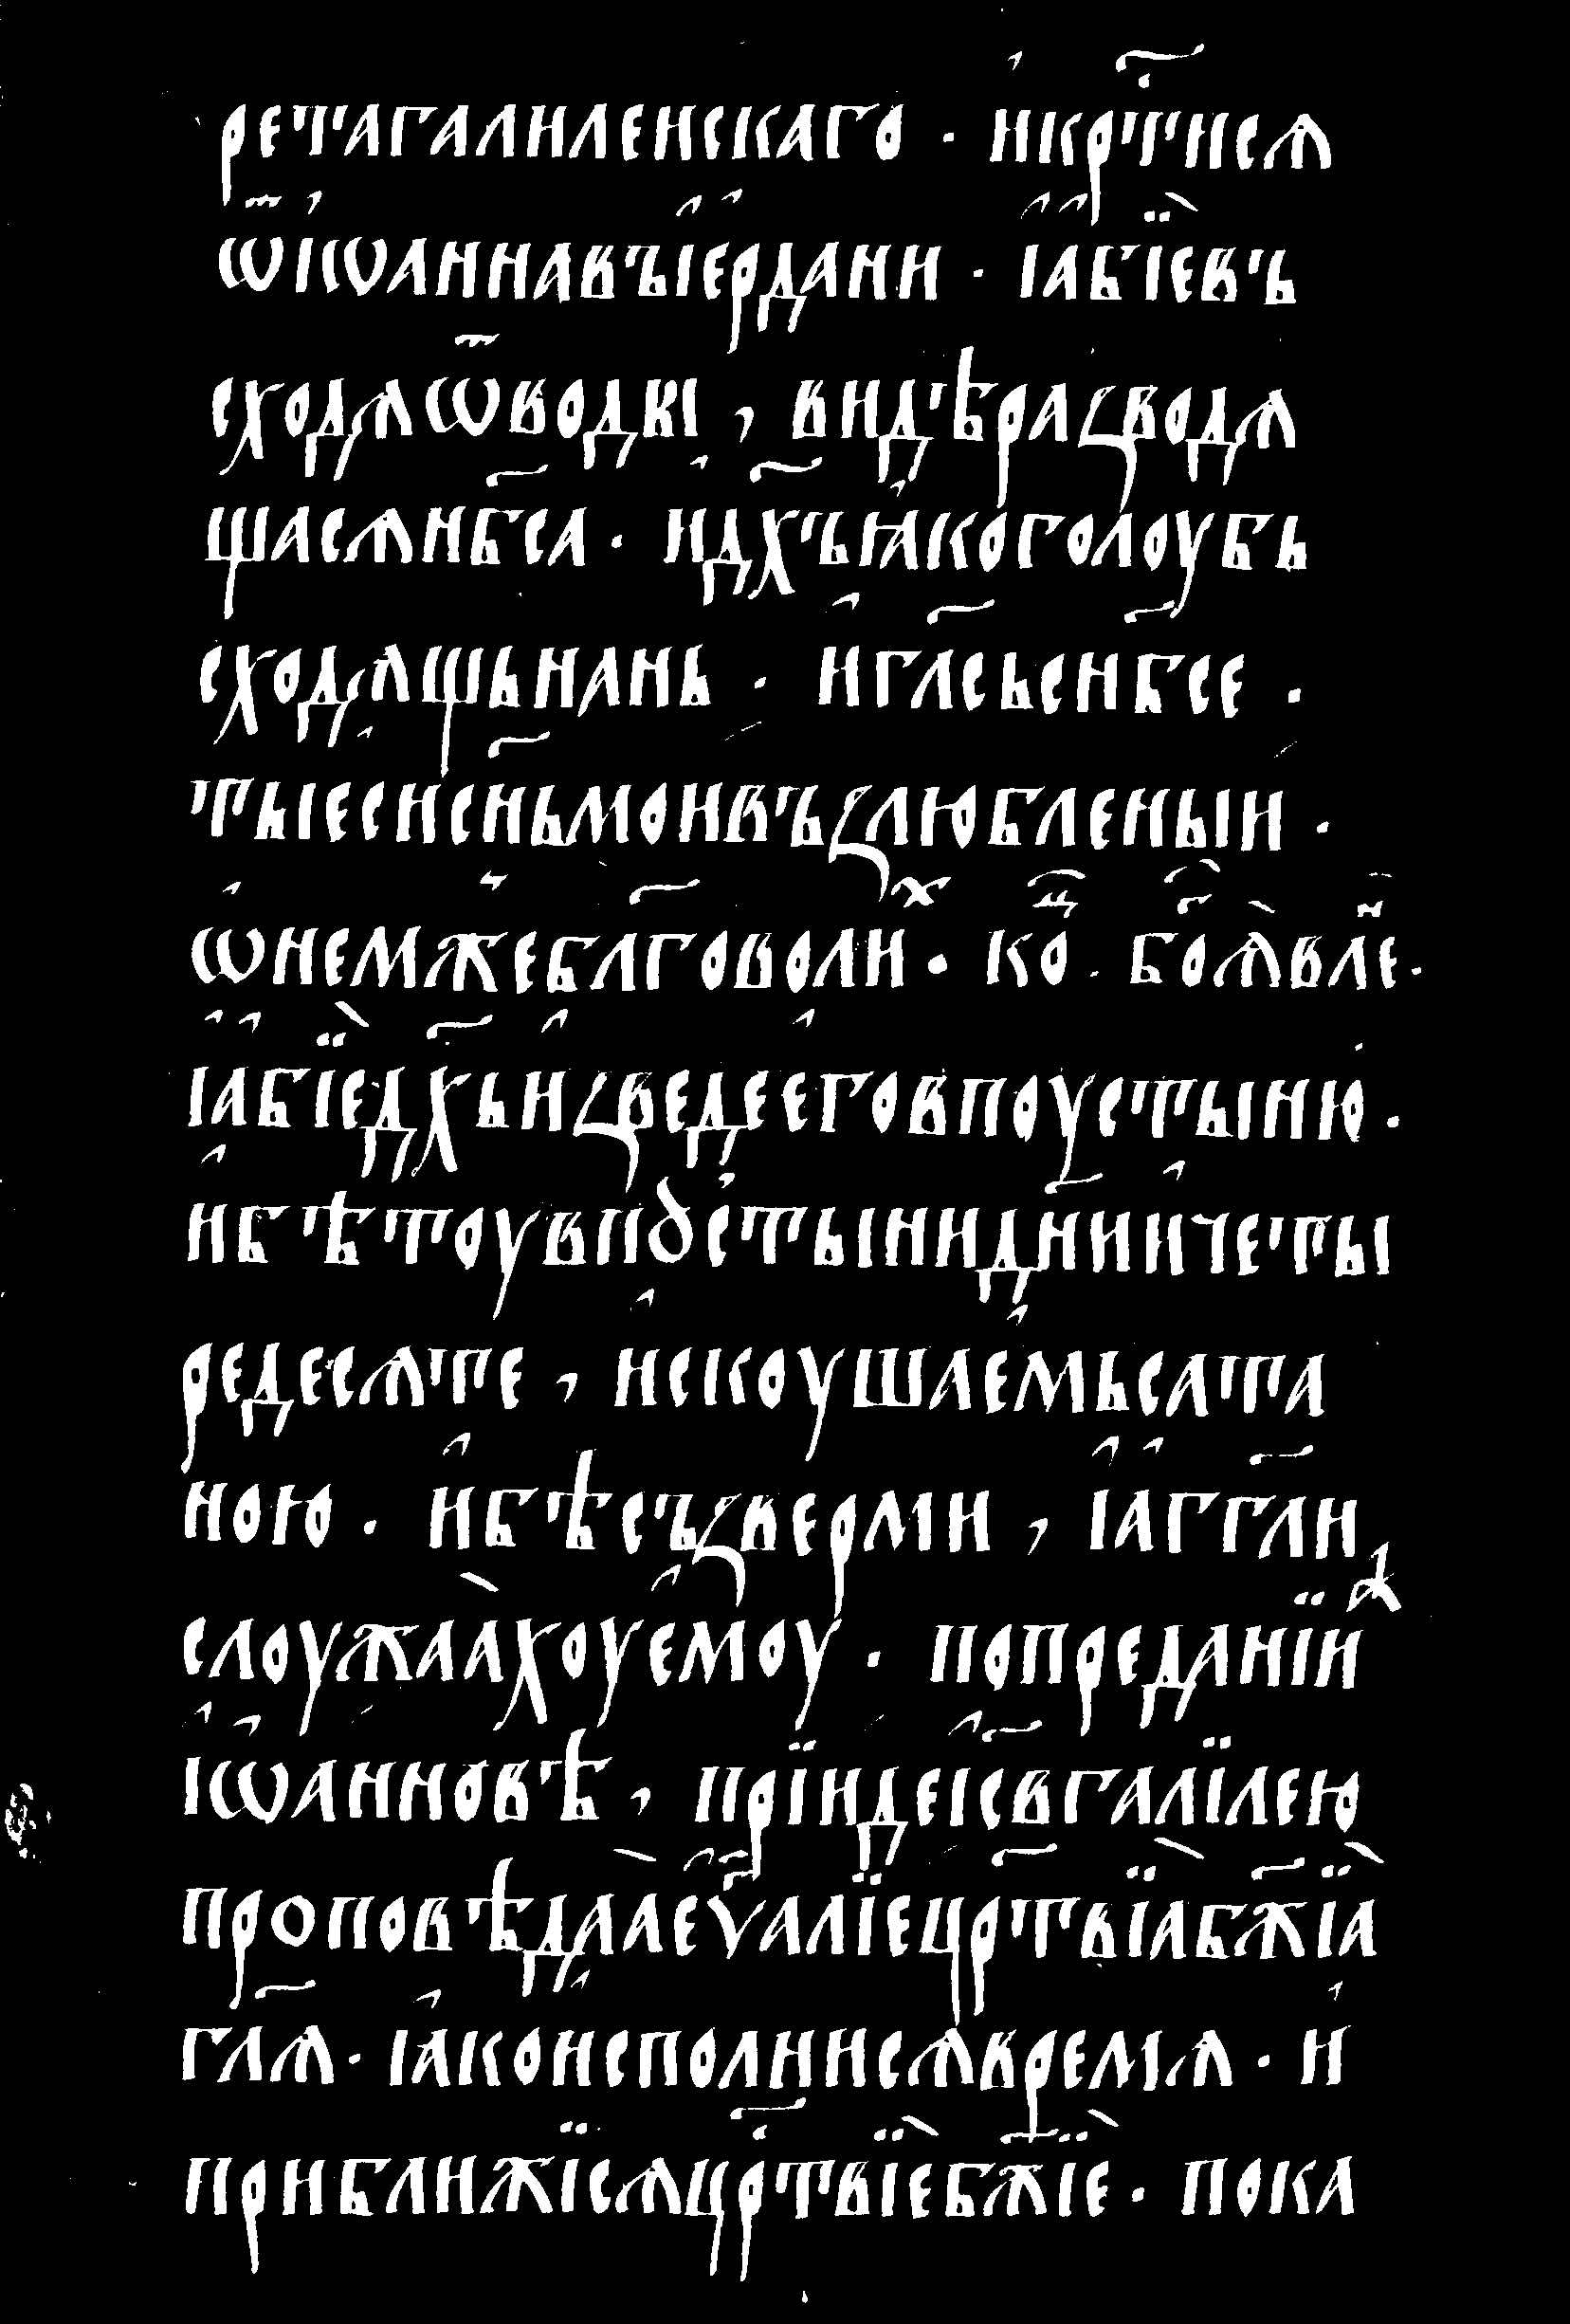 ретагалилеискаго · и҆кр҃тисѧ
ѿі҆ѡаннавъі҆е҆рдани · і҆а҆бїѐвъ
сходѧѿводкі , видѣразводѧ
щасѧнб҃са · и҆дх҃ъꙗ҆коголоубь
сходѧщьнань · и҆гл҃сьснб҃се ·
тыеси҆сн҃ьмоивъзлюбленыи ·
ѡ҆немжебл҃говоли · коⷰ҇ · боѧ̀влеⷩ҇ ·
і҆а҆бїѐдх҃ьи҆зведеего҆впоустыню ·
и҆бѣтоувпꙋс҆тынидн҃ии҆четы
редесѧте , и҆скоушаем҆ьсата
ною · и҆бѣсъзверми , і҆а҆гг҃ли
слоужаа̀хоуе҆моу · попреданїи
і҆ѡ҆анновѣ , прїидеі҆с҃вгалїлею
проповѣдаѧ̀е҆ѵⷢ҇алїецр҃твїа̀бж҃їа̀
гл҃ѧ · і҆а҆коисполнисѧвремѧ · и҆
приближїсѧцр҃твїѐбж҃їѐ · пока